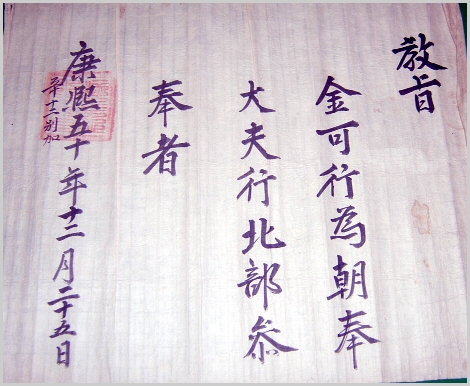 教旨
金可行為朝奉
大夫行北部叅
奉者
康熙五十年十二月二十五日